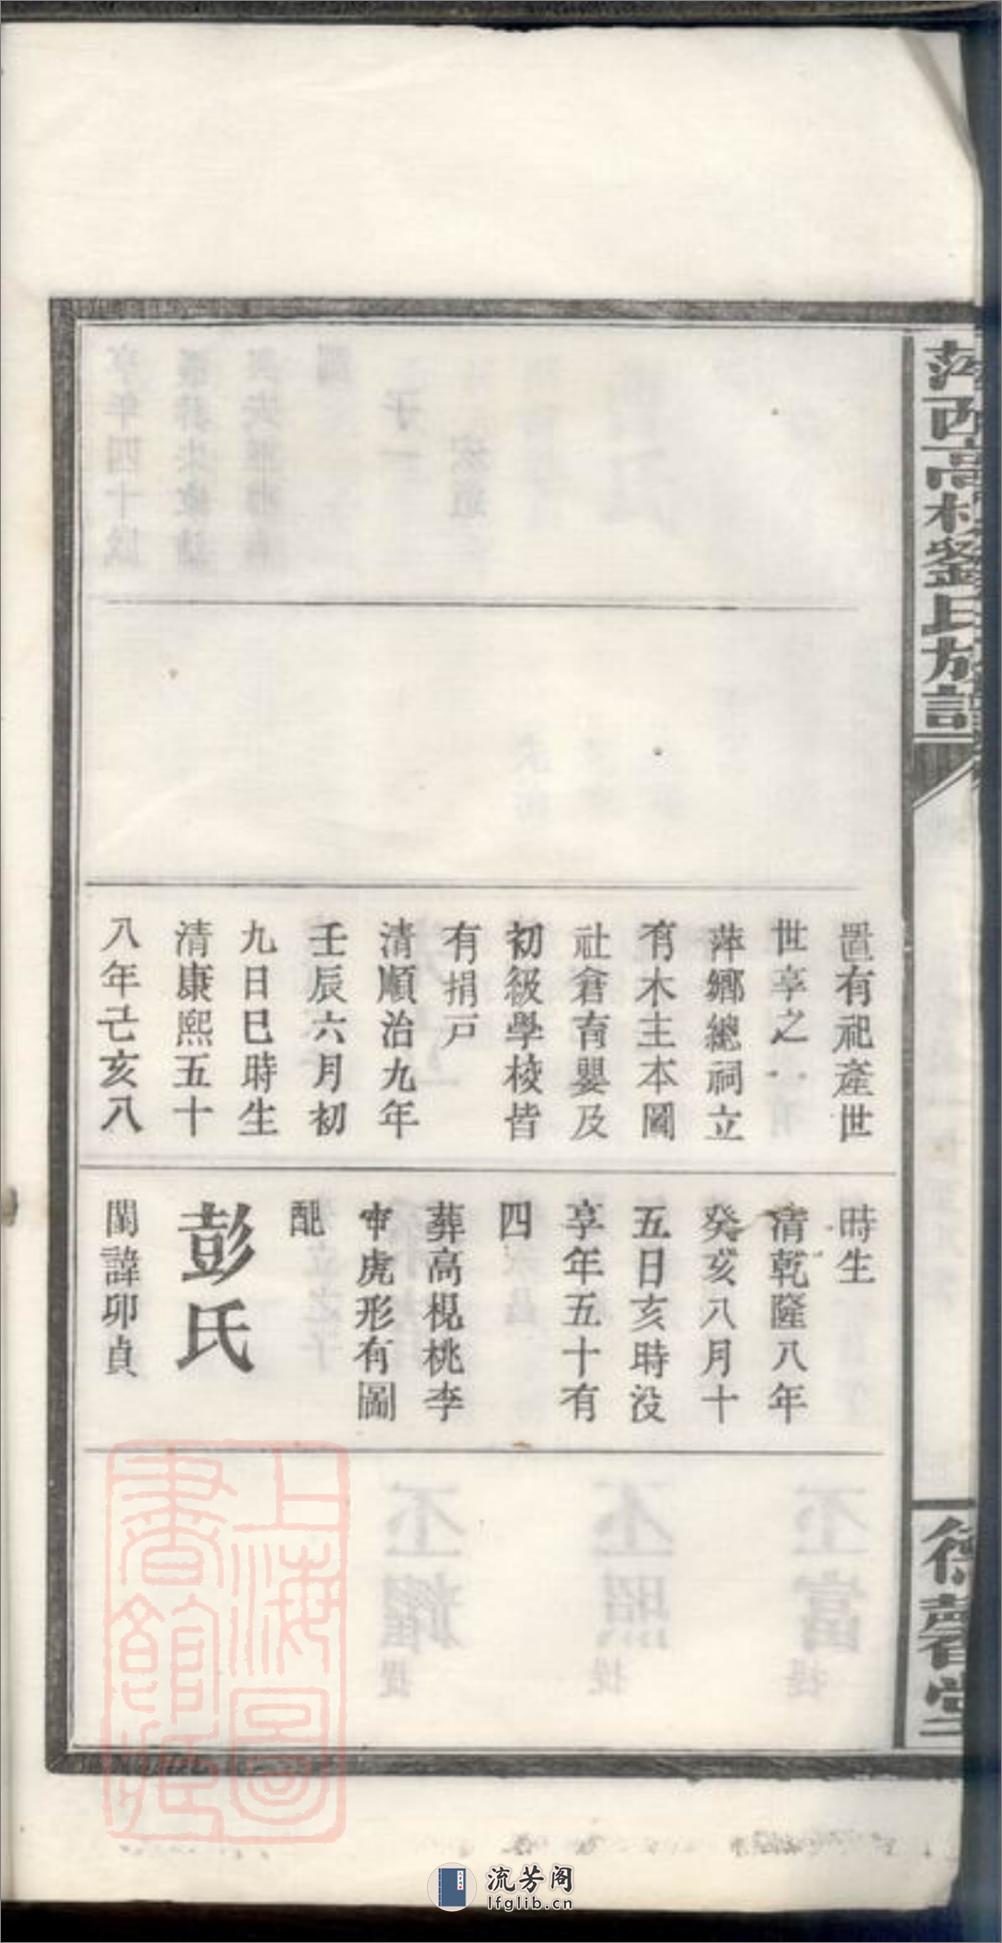 萍西高枧劉氏族譜
德馨堂
置有祀產世
世享之
萍鄉總祠立
有木主本圖
社倉育嬰及
初級學校皆
有捐戶
清順治九年
壬辰六月初
九日巳時生
清康熙五十
八年己亥八
時生
清乾隆八年
癸亥八月十
五日亥時没
享年五十有
四
葬高梘桃李
审虎形有圖
配
彭氏
閨諱卯貞
上海圖
書館藏
流芳阁
lfglib.cn